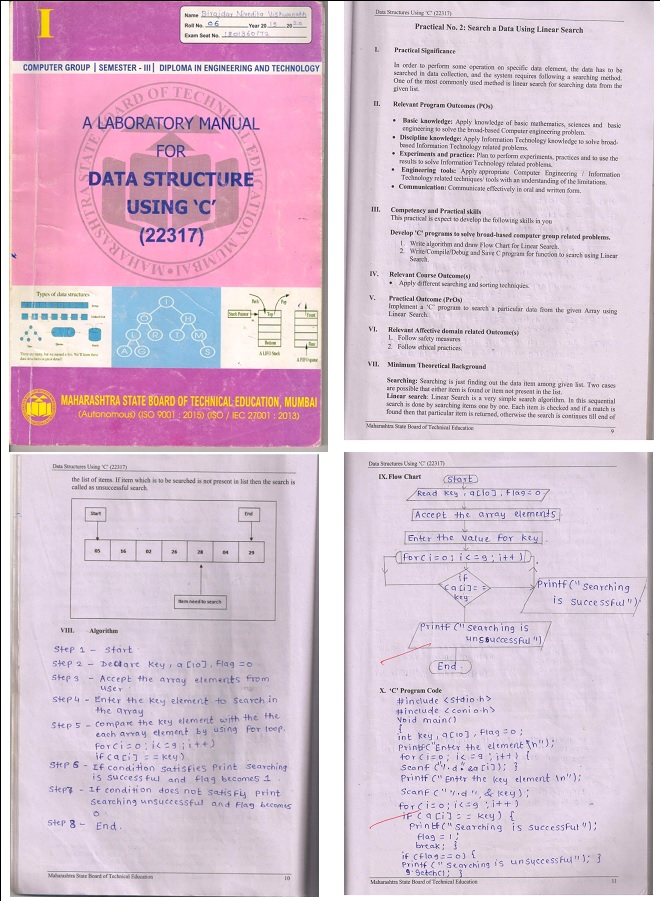 I
Name Birajdar Nivedita Vishwanath
Roll No. 06 Year 20 19 20 20
Exam Seat No.
COMPUTER GROUP | SEMESTER - III | DIPLOMA IN ENGINEERING AND TECHNOLOGY
A LABORATORY MANUAL
FOR
DATA STRUCTURE
USING 'C'
(22317)
Types of data structures
MAHARASHTRA STATE BOARD OF TECHNICAL EDUCATION, MUMBAI
(Autonomous) (ISO 9001 : 2015) (ISO / IEC 27001 : 2013)
Data Structures Using 'C' (22317)
Practical No. 2: Search a Data Using Linear Search
I. Practical Significance
In order to perform some operation on specific data element, the data has to be
searched in data collection, and the system requires following a searching method.
One of the most commonly used method is linear search for searching data from the
given list.
II. Relevant Program Outcomes (POs)
• Basic knowledge: Apply knowledge of basic mathematics, sciences and basic
engineering to solve the broad-based Computer engineering problem.
• Discipline knowledge: Apply Information Technology knowledge to solve broad-
based Information Technology related problems.
• Experiments and practice: Plan to perform experiments, practices and to use the
results to solve Information Technology related problems.
• Engineering tools: Apply appropriate Computer Engineering / Information
Technology related techniques/ tools with an understanding of the limitations.
• Communication: Communicate effectively in oral and written form.
III. Competency and Practical skills
This practical is expect to develop the following skills in you
Develop 'C' programs to solve broad-based computer group related problems.
1. Write algorithm and draw Flow Chart for Linear Search.
2. Write/Compile/Debug and Save C program for function to search using Linear
Search.
IV. Relevant Course Outcome(s)
• Apply different searching and sorting techniques.
V. Practical Outcome (PrOs)
Implement a 'C' program to search a particular data from the given Array using
Linear Search.
VI. Relevant Affective domain related Outcome(s)
1. Follow safety measures
2. Follow ethical practices.
VII. Minimum Theoretical Background
Searching: Searching is just finding out the data item among given list. Two cases
are possible that either item is found or item not present in the list.
Linear search: Linear Search is a very simple search algorithm. In this sequential
search is done by searching items one by one. Each item is checked and if a match is
found then that particular item is returned, otherwise the search is continues till end of
Maharashtra State Board of Technical Education 9
Data Structures Using 'C' (22317)
the list of items. If item which is to be searched is not present in list then the search is
called as unsuccessful search.
Start End
05 16 02 26 28 04 29
Item need to search
VIII. Algorithm
Step 1 - Start.
Step 2 - Declare key, a[10], Flag = 0
Step 3 - Accept the array elements from
user.
Step 4 - Enter the key element to search in
the array
Step 5 - Compare the key element with the the
each array element by using for loop.
for(i=0; i<=9; i++)
if(a[i]==key)
Step 6 - If condition satisfies print searching
is successful and flag becomes 1
Step 7 - If condition does not satisfiy print
searching unsuccessful and flag becomes
0
Step 8 - End.
Maharashtra State Board of Technical Education 10
Data Structures Using 'C' (22317)
IX. Flow Chart
Start
Read key, a[10], Flag = 0
Accept the array elements
Enter the value for key
for(i=0; i<=9; i++)
if
(a[i]==
key
Printf("Searching
is successful")
Printf("Searching is
unsuccessful")
End.
X. 'C' Program Code
#include <stdio.h>
#include <conio.h>
void main()
{
int key, a[10], flag = 0;
Printf("Enter the element \n");
for(i=0; i<=9; i++) {
Scanf("%d", &a[i]); }
Printf("Enter the key element \n");
Scanf("%d", & key);
for(i=0; i<=9; i++)
if (a[i] == key) {
Printf("Searching is successful");
flag = 1;
break; }
if (flag == 0) {
Printf("Searching is unsuccessful"); }
getch(); }
Maharashtra State Board of Technical Education 11